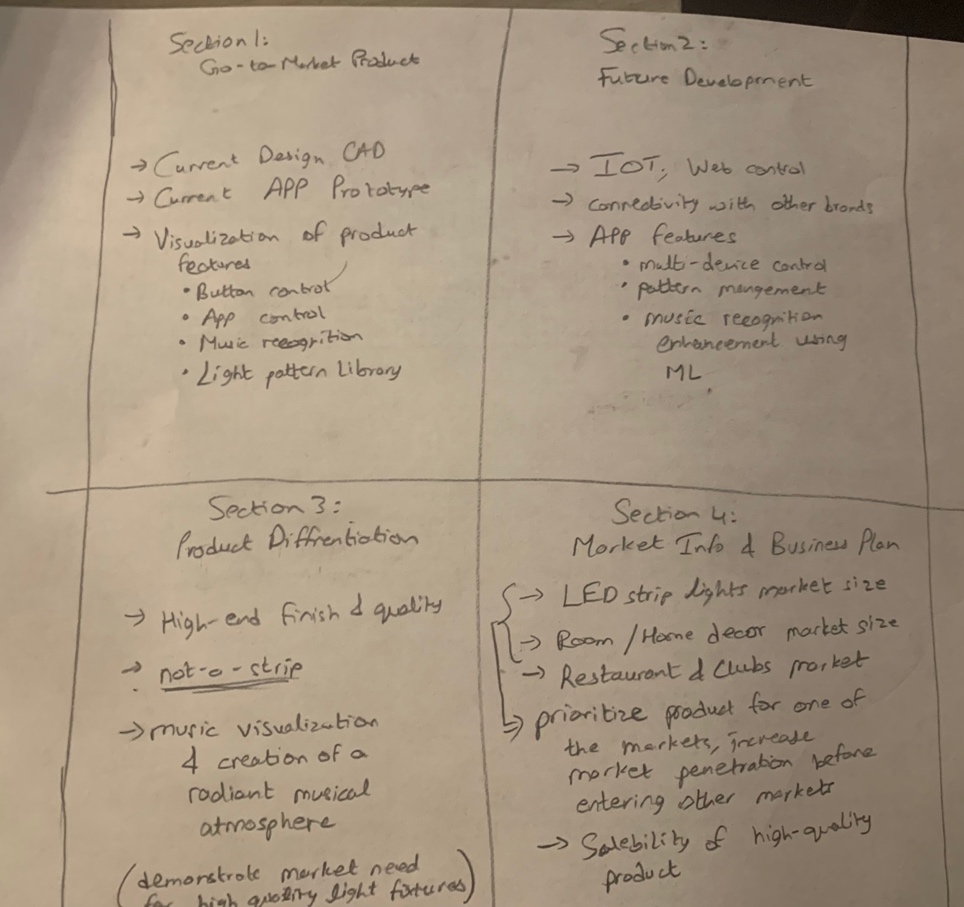 Section 1:
Go-to-Market Product
→ Current Design CAD
→ Current APP Prototype
→ Visualization of product
features
• Button control
• App control
• Music recognition
• Light pattern Library
Section 2:
Future Development
→ IOT, Web control
→ connectivity with other brands
→ APP features
• multi-device control
• pattern mangement
• music recognition
enhancement using
ML
Section 3:
Product Diffrentiation
→ High-end finish & quality
→ not-a-strip
→ music visualization
& creation of a
radiant musical
atmosphere
(demonstrate market need
for high quality light fixtures)
Section 4:
Market Info & Business Plan
→ LED strip lights market size
→ Room / Home decor market size
→ Restaurant & Clubs market
→ prioritize product for one of
the markets, increase
market penetration before
entering other markets
→ Salebility of high-quality
product